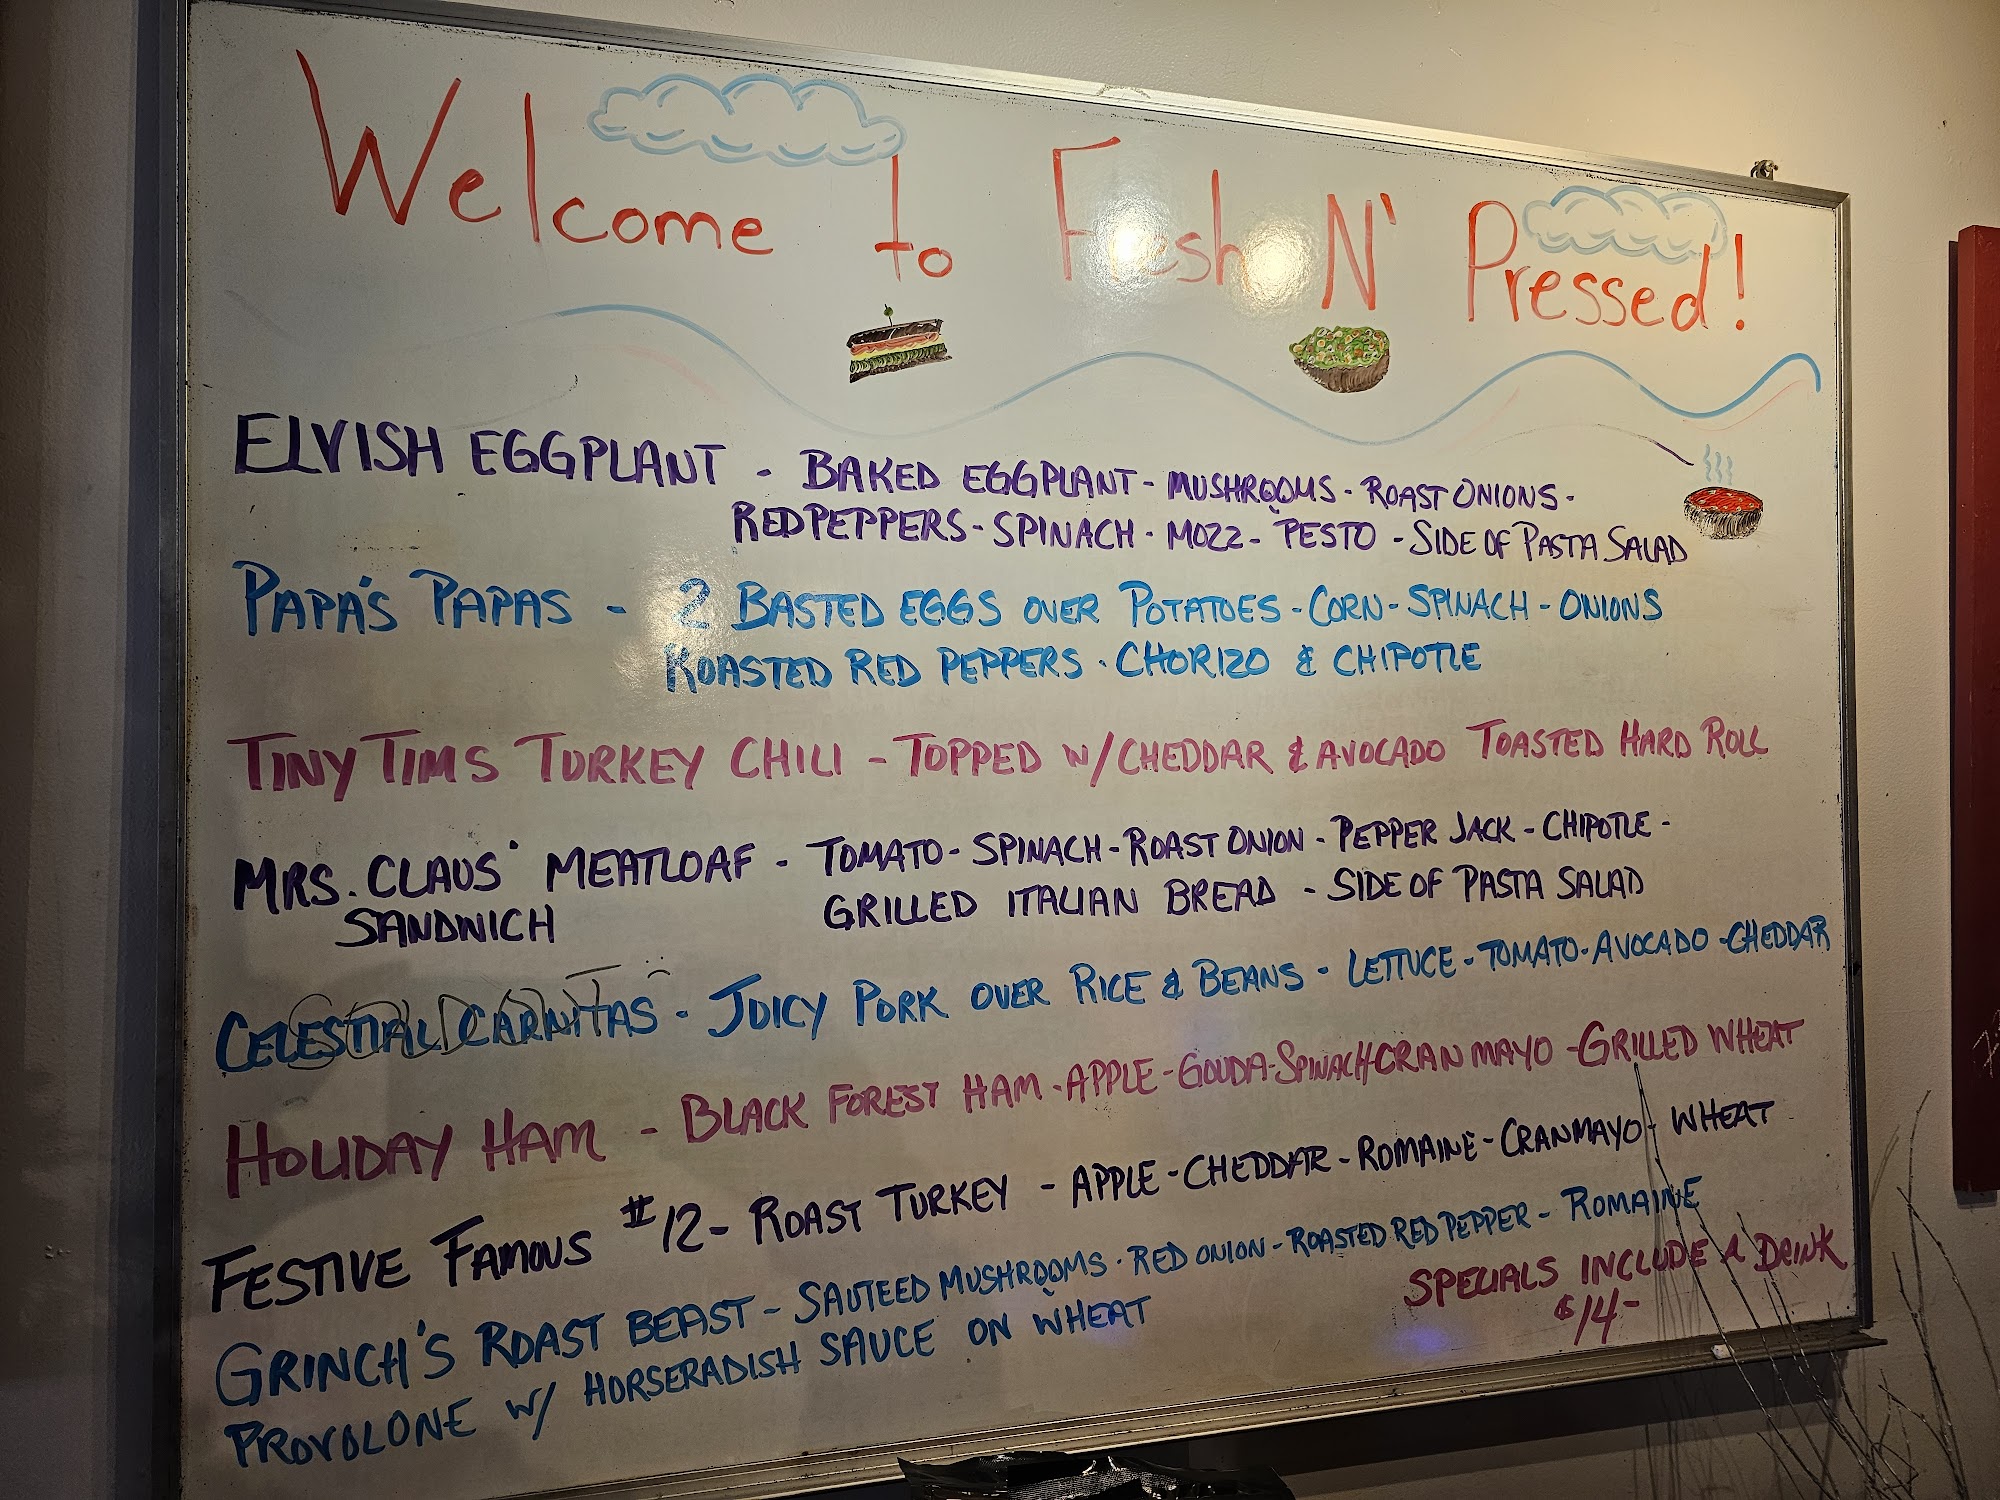 Welcome to Fresh N' Pressed!
ELVISH EGGPLANT - BAKED EGGPLANT - MUSHROOMS - ROAST ONIONS -
RED PEPPERS - SPINACH - MOZZ - PESTO - SIDE OF PASTA SALAD
PAPA'S PAPAS - 2 BASTED EGGS OVER POTATOES - CORN - SPINACH - ONIONS
ROASTED RED PEPPERS - CHORIZO & CHIPOTLE
TINY TIMS TURKEY CHILI - TOPPED W/ CHEDDAR & AVOCADO TOASTED HARD ROLL
MRS. CLAUS' MEATLOAF - TOMATO - SPINACH - ROAST ONION - PEPPER JACK - CHIPOTLE -
SANDWICH GRILLED ITALIAN BREAD - SIDE OF PASTA SALAD
SOLD OUT
CELESTIAL CARNITAS - JUICY PORK OVER RICE & BEANS - LETTUCE - TOMATO - AVOCADO - CHEDDAR
HOLIDAY HAM - BLACK FOREST HAM - APPLE - GOUDA - SPINACH - CRAN MAYO - GRILLED WHEAT
FESTIVE FAMOUS #12 - ROAST TURKEY - APPLE - CHEDDAR - ROMAINE - CRANMAYO - WHEAT
GRINCH'S ROAST BEAST - SAUTEED MUSHROOMS - RED ONION - ROASTED RED PEPPER - ROMAINE
PROVOLONE W/ HORSERADISH SAUCE ON WHEAT
SPECIALS INCLUDE A DRINK
$14-